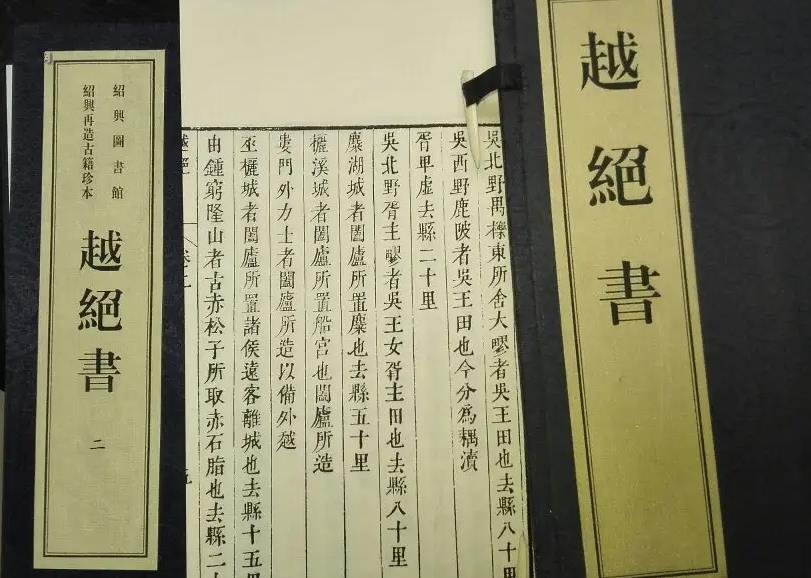 越絕書
吳北野禺櫟東所舍大疁者吳王田也去縣八十里
吳西野鹿陂者吳王田也今分為耦瀆
胥卑虛去縣二十里
吳北野胥主疁者吳王女胥主田也去縣八十里
麋湖城者闔廬所置麋也去縣五十里
欐溪城者闔廬所置船宮也闔廬所造
婁門外力士者闔廬所造以備外越
巫欐城者闔廬所置諸侯遠客離城也去縣十五里
由鍾窮隆山者古赤松子所取赤石脂也去縣二十
越絕 卷二
紹興圖書館
紹興再造古籍珍本
越絕書
二